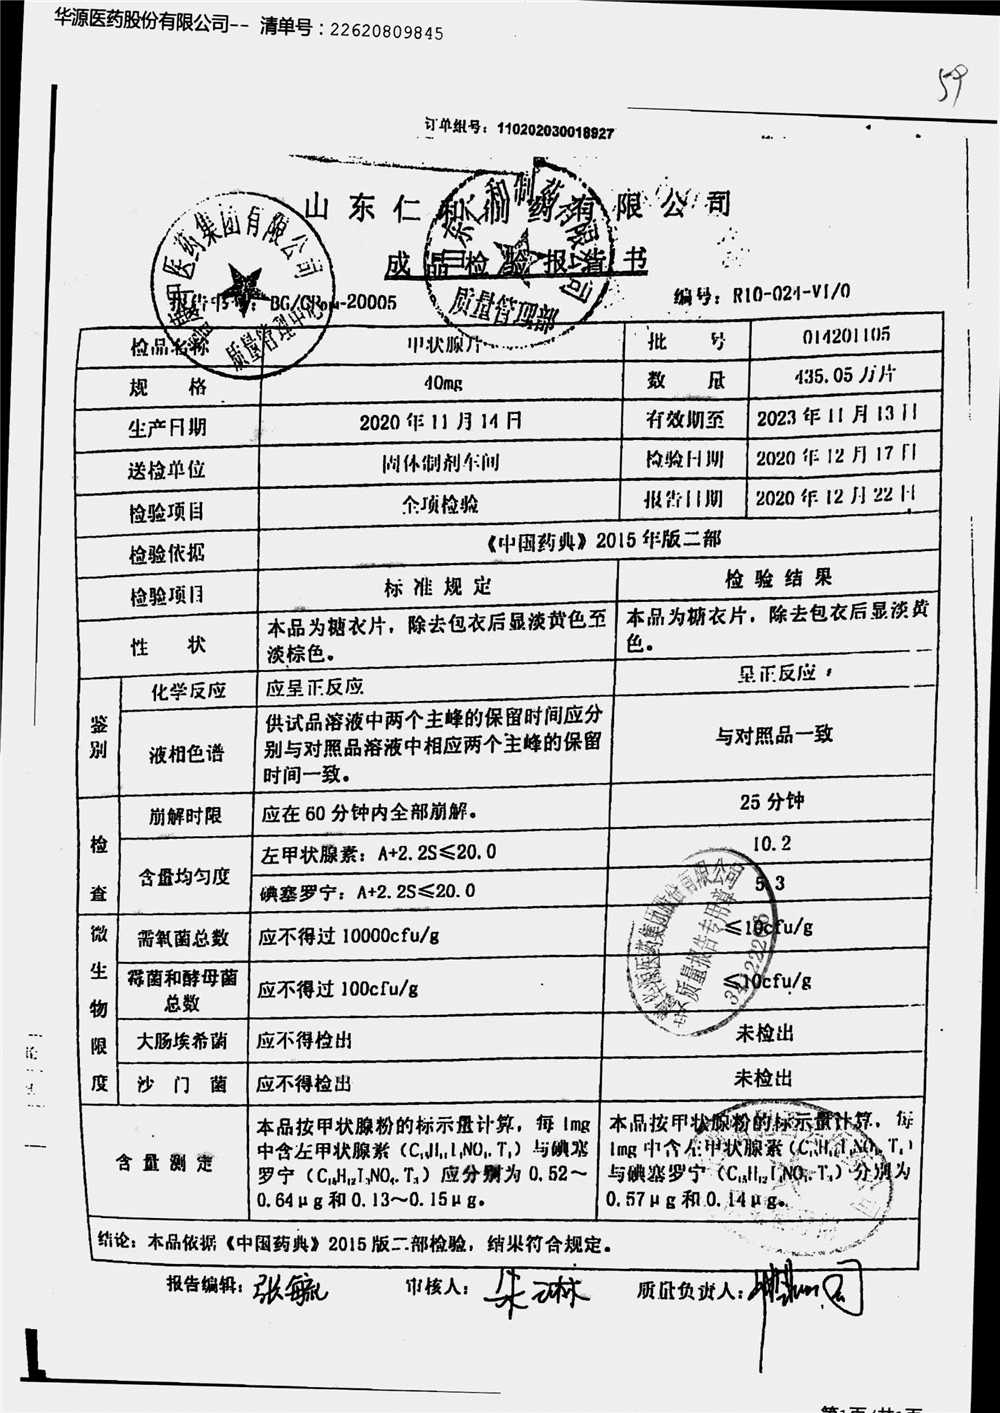 华源医药股份有限公司-- 清单号：22620809845
59
订单组号：110202030018927
山东仁和制药有限公司
成品检验报告书
编号：R10-024-V1/0
检品名称 甲状腺片 批 号 014201105
规 格 40mg 数 量 435.05 万片
生产日期 2020 年 11 月 14 日 有效期至 2023 年 11 月 13 日
送检单位 固体制剂车间 检验日期 2020 年 12 月 17 日
检验项目 全项检验 报告日期 2020 年 12 月 22 日
检验依据 《中国药典》2015 年版二部
检验项目 标准规定 检验结果
性 状 本品为糖衣片，除去包衣后显淡黄色至淡棕色。 本品为糖衣片，除去包衣后显淡黄色。
鉴别 化学反应 应呈正反应 呈正反应
液相色谱 供试品溶液中两个主峰的保留时间应分别与对照品溶液中相应两个主峰的保留时间一致。 与对照品一致
检查 崩解时限 应在 60 分钟内全部崩解。 25 分钟
含量均匀度 左甲状腺素：A+2.2S≤20.0 10.2
碘塞罗宁：A+2.2S≤20.0 5.3
微生物限度 需氧菌总数 应不得过 10000cfu/g ≤10cfu/g
霉菌和酵母菌总数 应不得过 100cfu/g ≤10cfu/g
大肠埃希菌 应不得检出 未检出
沙门菌 应不得检出 未检出
含量测定 本品按甲状腺粉的标示量计算，每 1mg
中含左甲状腺素（C₁₅H₁₁I₄NO₄，T₄）与碘塞
罗宁（C₁₅H₁₂I₃NO₄，T₃）应分别为 0.52～
0.64μg 和 0.13～0.15μg。
本品按甲状腺粉的标示量计算，每
1mg 中含左甲状腺素（C₁₅H₁₁I₄NO₄，T₄）
与碘塞罗宁（C₁₅H₁₂I₃NO₄，T₃）分别为
0.57μg 和 0.14μg。
结论：本品依据《中国药典》2015 版二部检验，结果符合规定。
报告编辑：张毓 审核人：朱琳 质量负责人：